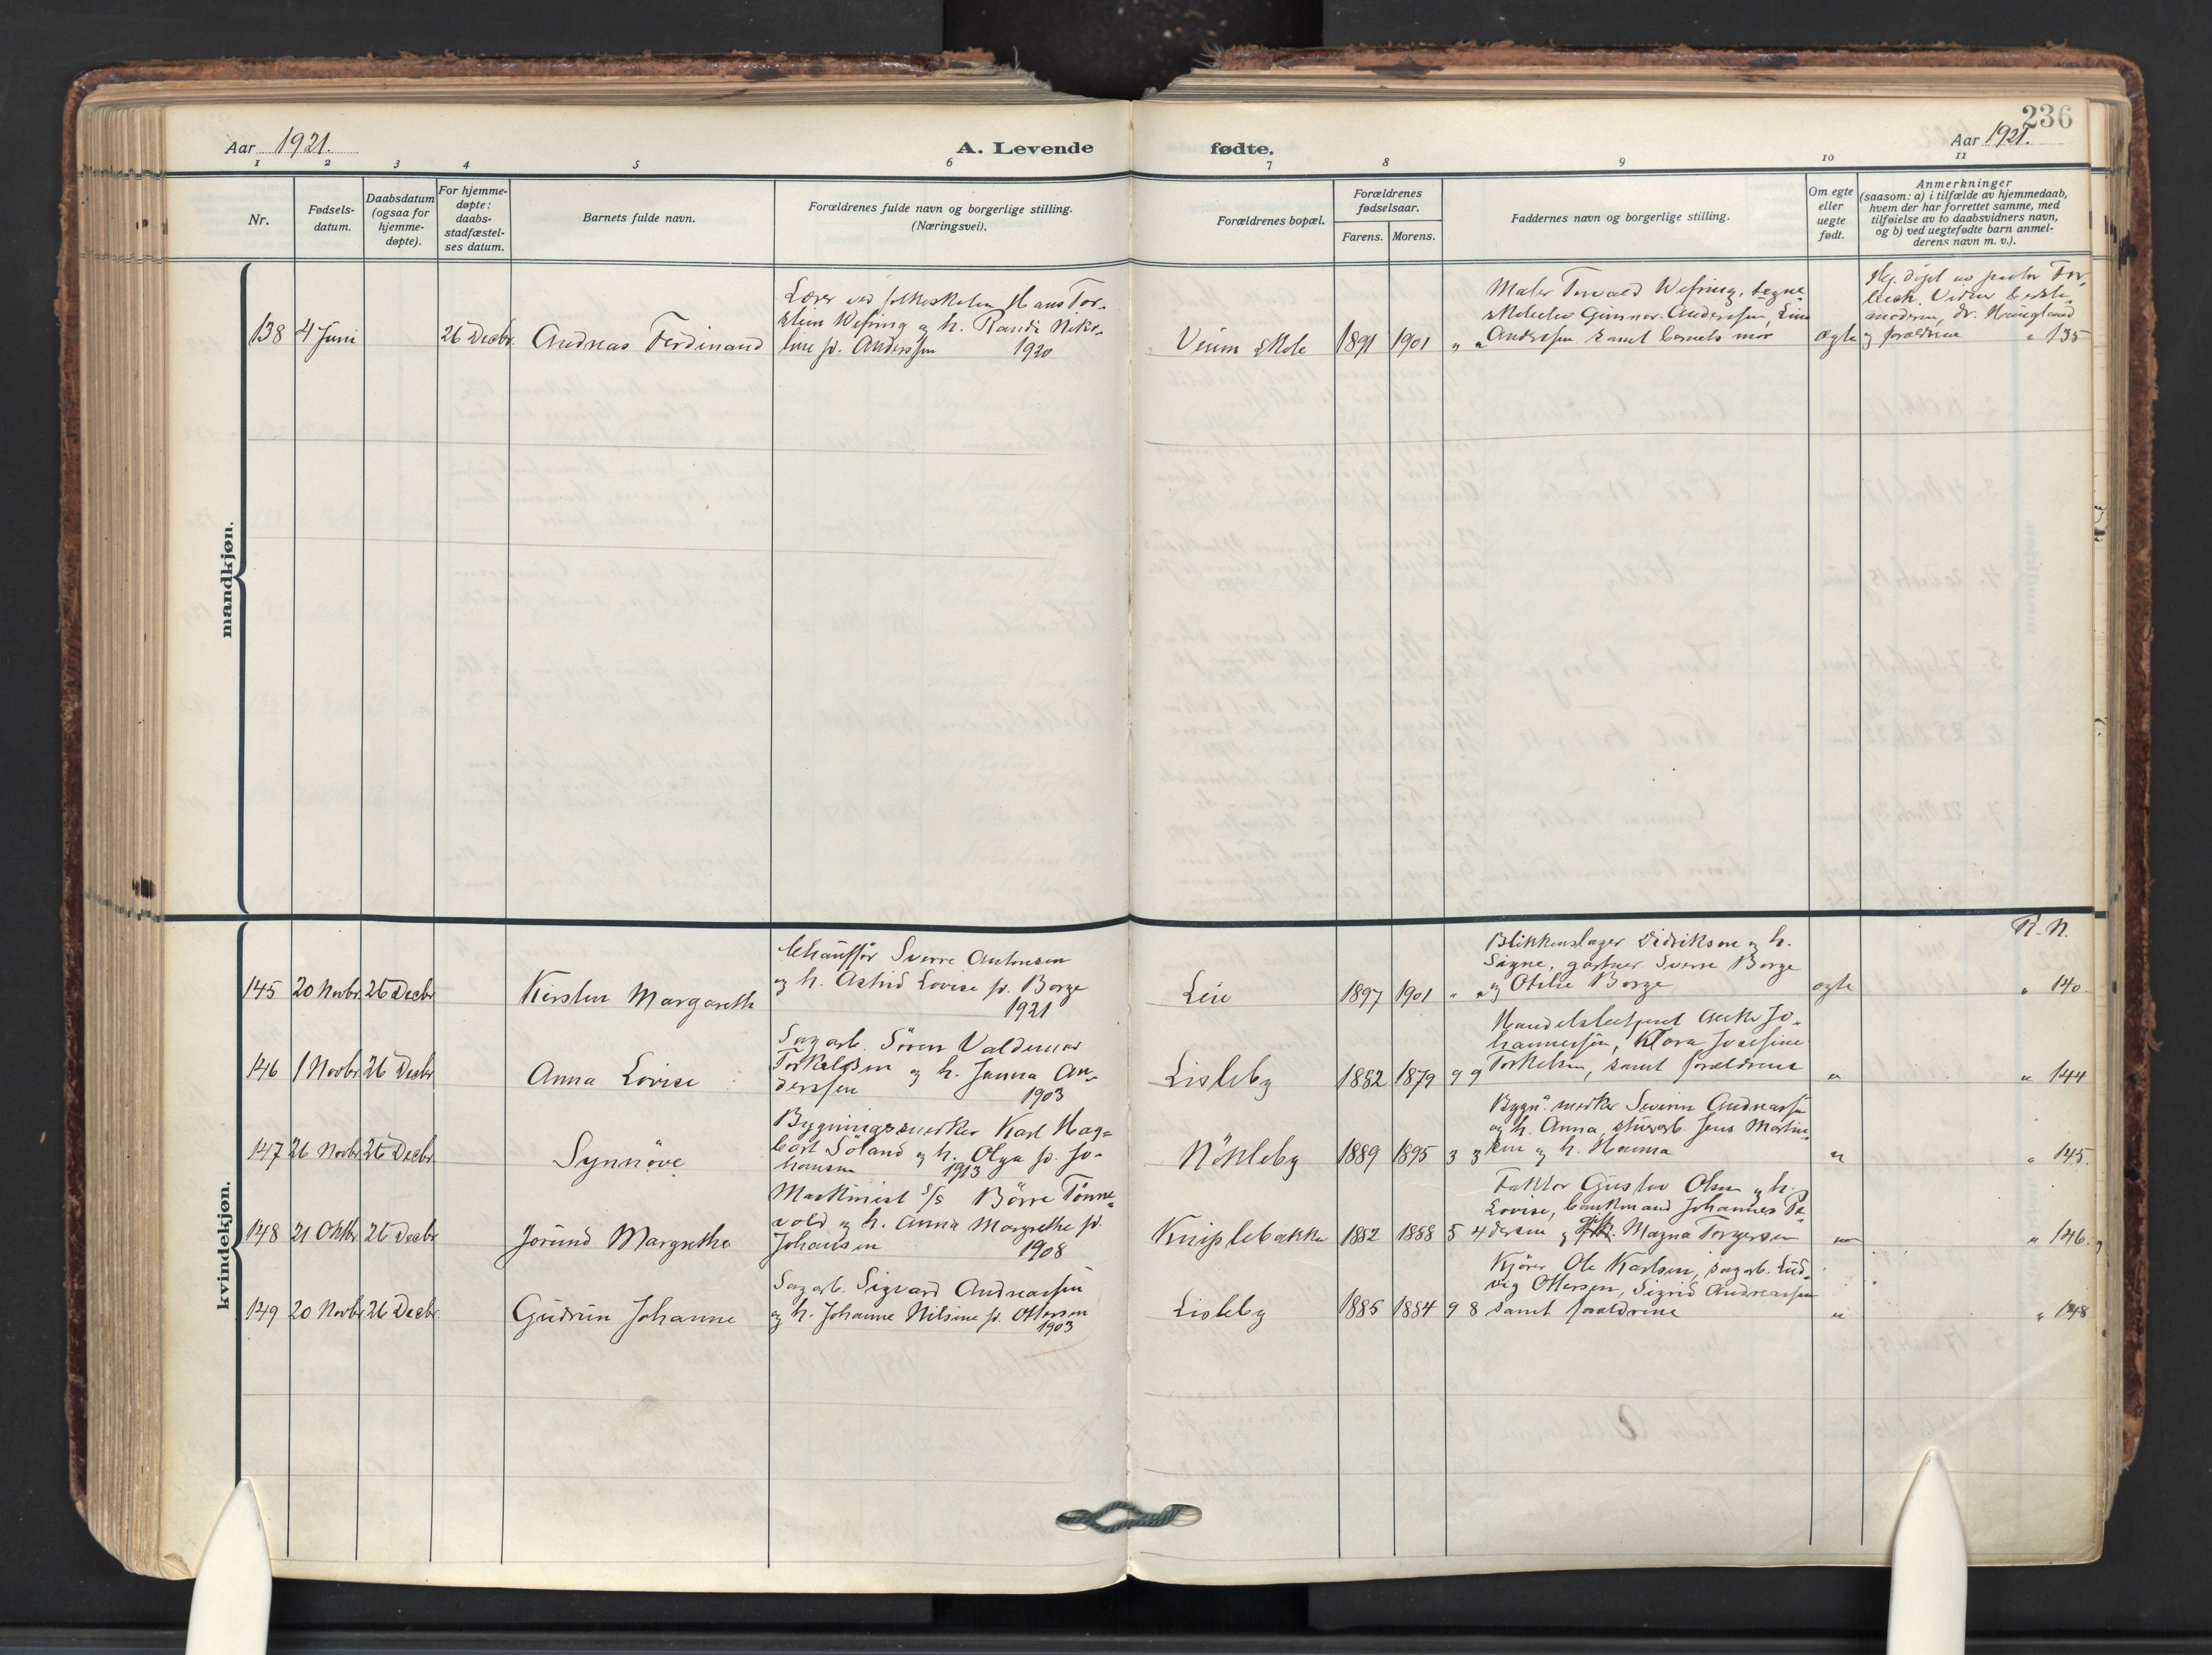 236
Aar 1921. A. Levende fødte. Aar 1921.
1 2 3 4 5 6 7 8 9 10 11
Nr.
Fødsels-
datum.
Daabsdatum
(ogsaa for
hjemme-
døpte).
For hjemme-
døpte:
daabs-
stadfæstel-
ses datum.
Barnets fulde navn.
Forældrenes fulde navn og borgerlige stilling.
(Næringsvei).
Forældrenes bopæl.
Forældrenes
fødselsaar.
Farens. Morens.
Faddernes navn og borgerlige stilling.
Om egte
eller
uegte
født.
Anmerkninger
(saasom: a) i tilfælde av hjemmedaab,
hvem der har forrettet samme, med
tilføielse av to daabsvidners navn,
og b) ved uegtefødte barn anmel-
derens navn m. v.).
mandkjøn.
138 4 Juni 26 Decbr. Andreas Ferdinand
Lærer ved folkeskolen Hans Tor-
stein Wefring og h. Randi Niko-
line f. Anderssen 1920
Veum skole 1891 1901 " "
Maler Torvald Wefring, tegne-
skoleelev Gunnar Anderssen,
Anderssen samt barnets mor
ægte
Hj. døpt av pastor
moderen, dr.
og forældrene " 135
kvindekjøn.
R. N.
145 20 Novbr. 26 Decbr. Kirsten Margareth
Chauffør Sverre Antonsen
og h. Astrid Lovise f. Borge
1921
Leie 1897 1901 " "
Blikkenslager Didriksen og h.
Signe, gartner Sverre Borge
og Otilie Borge
ægte " 140.
146 1 Novbr. 26 Decbr. Anna Lovise
Sagarb. Sören Valdemar
Torkelsen og h. Janna An-
derssen 1903
Lisleby 1882 1879 9 9
Handelsbetjent Jo-
hannessen, Klara Josefine
Torkelsen, samt forældrene
" " 144
147 26 Novbr. 26 Decbr. Synnöve
Bygningssnekker Karl Hag-
bart Söland og h. Olga f. Jo-
hansen 1913
Nökleby 1889 1895 3 3
Bygn. snekker Severin Andreassen
og h. Anna, Jens Martin-
sen og h. Hanna
" " 145.
148 21 Oktbr. 26 Decbr. Jorund Margrethe
Maskinist S/S Börre Tönne-
vold og h. Anna Margrethe f.
Johansen 1908
Kniplebakken 1882 1888 5 4
Faktor Gustav Olsen og h.
Lovise, bankmand Johannes Pe-
dersen og Magna Torgersen
" " 146.
149 20 Novbr. 26 Decbr. Gudrun Johanne
Sagarb. Sigvard Andreassen
og h. Johanne Nilsine f. Ottersen
1903
Lisleby 1885 1884 9 8
Kjörer Ole Karlsen, sagarb. Lud-
vig Ottersen, Sigrid Andreassen
samt forældrene
" " 148